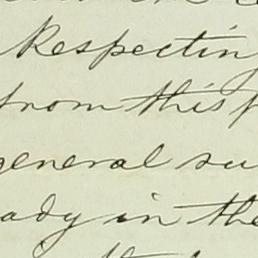 Respectin
from this p
general su
ady in the